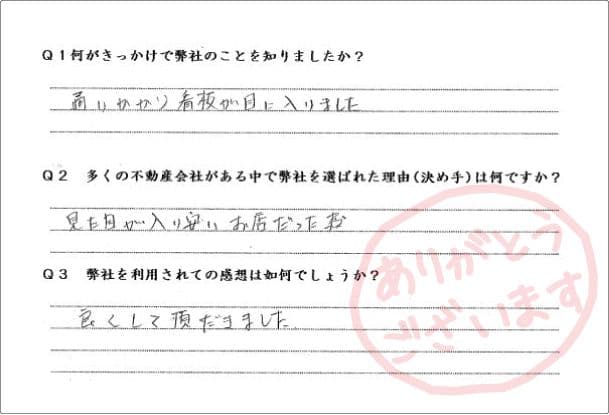 Q1何がきっかけで弊社のことを知りましたか？
通りかかり看板が目に入りました
Q2 多くの不動産会社がある中で弊社を選ばれた理由(決め手)は何ですか？
見た目が入り安いお店だった為
Q3 弊社を利用されての感想は如何でしょうか？
良くして頂だきました
ありがとう
ございます